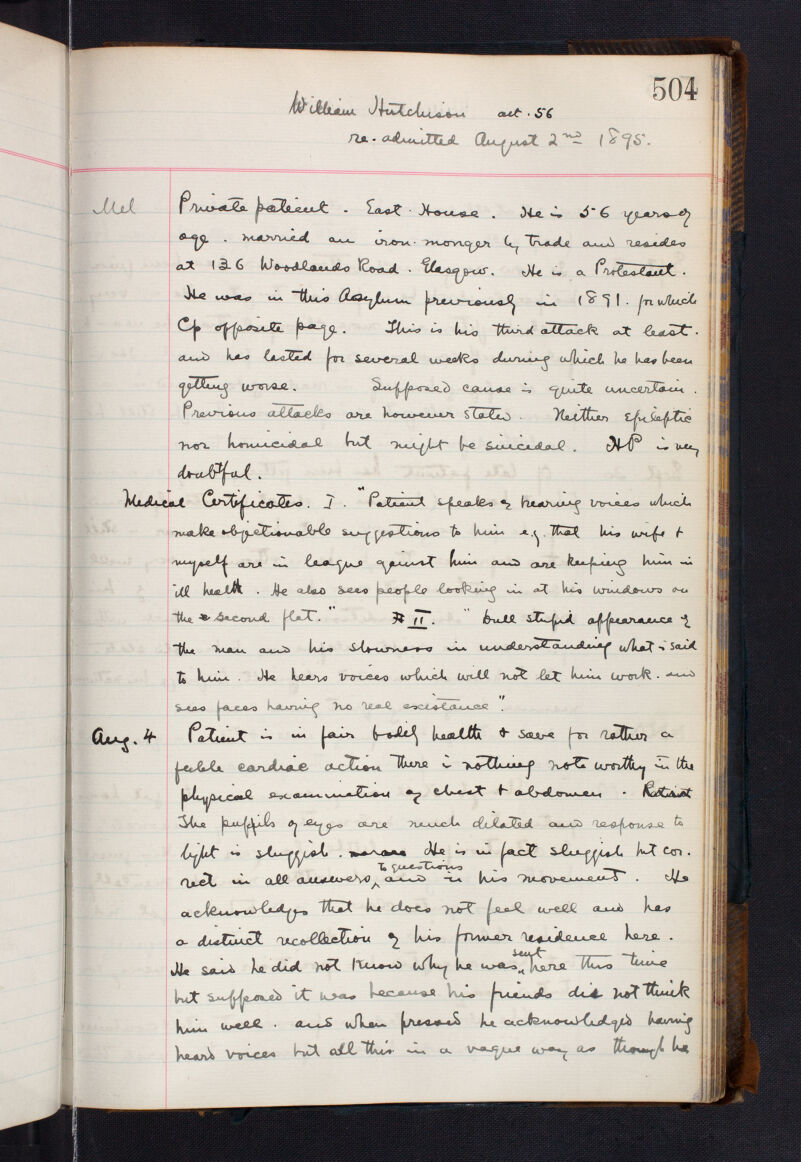 504
William Hutchison aet. 56
re-admitted August 2nd 1895.
Mel
Private patient. East House. He is 56 years of
age. married an iron-monger by trade and resides
at 136 Woodlands Road. Glasgow. He is a Protestant.
He was in this Asylum previously in 1891. for which
Cp opposite page. This is his third attack at least.
and has lasted for several weeks during which he has been
getting worse. Supposed cause is quite uncertain.
Previous attacks are however stated. Neither Epileptic
nor homicidal but might be suicidal. HP is very
doubtful.
Medical Certificates. I. "Patient speaks of hearing voices which
make objectionable suggestions to him e.g. that his wife &
myself are in league against him and are keeping him in
ill health. He also sees people looking in at his windows on
the second flat." II. "Dull stupid appearance of
the man and his slowness in understanding what is said
to him. He hears voices which will not let him work. and
sees faces having no real existance".
Aug. 4 Patient is in fair bodily health & save for rather a
feeble cardiac action there is nothing note worthy in the
physical examination of chest & abdomen.
The puppils of eyes are much dilated and response to
light is sluggish. He is in fact sluggish but cor-
rect in all answers to questions and in his movement. He
acknowledges that he does not feel well and has
a distinct recollection of his former residence here.
He said he did not know why he was sent here this time
but supposed it was because his friends did not think
him well. and when pressed he acknowledged having
heard voices but all this in a vague way as though he